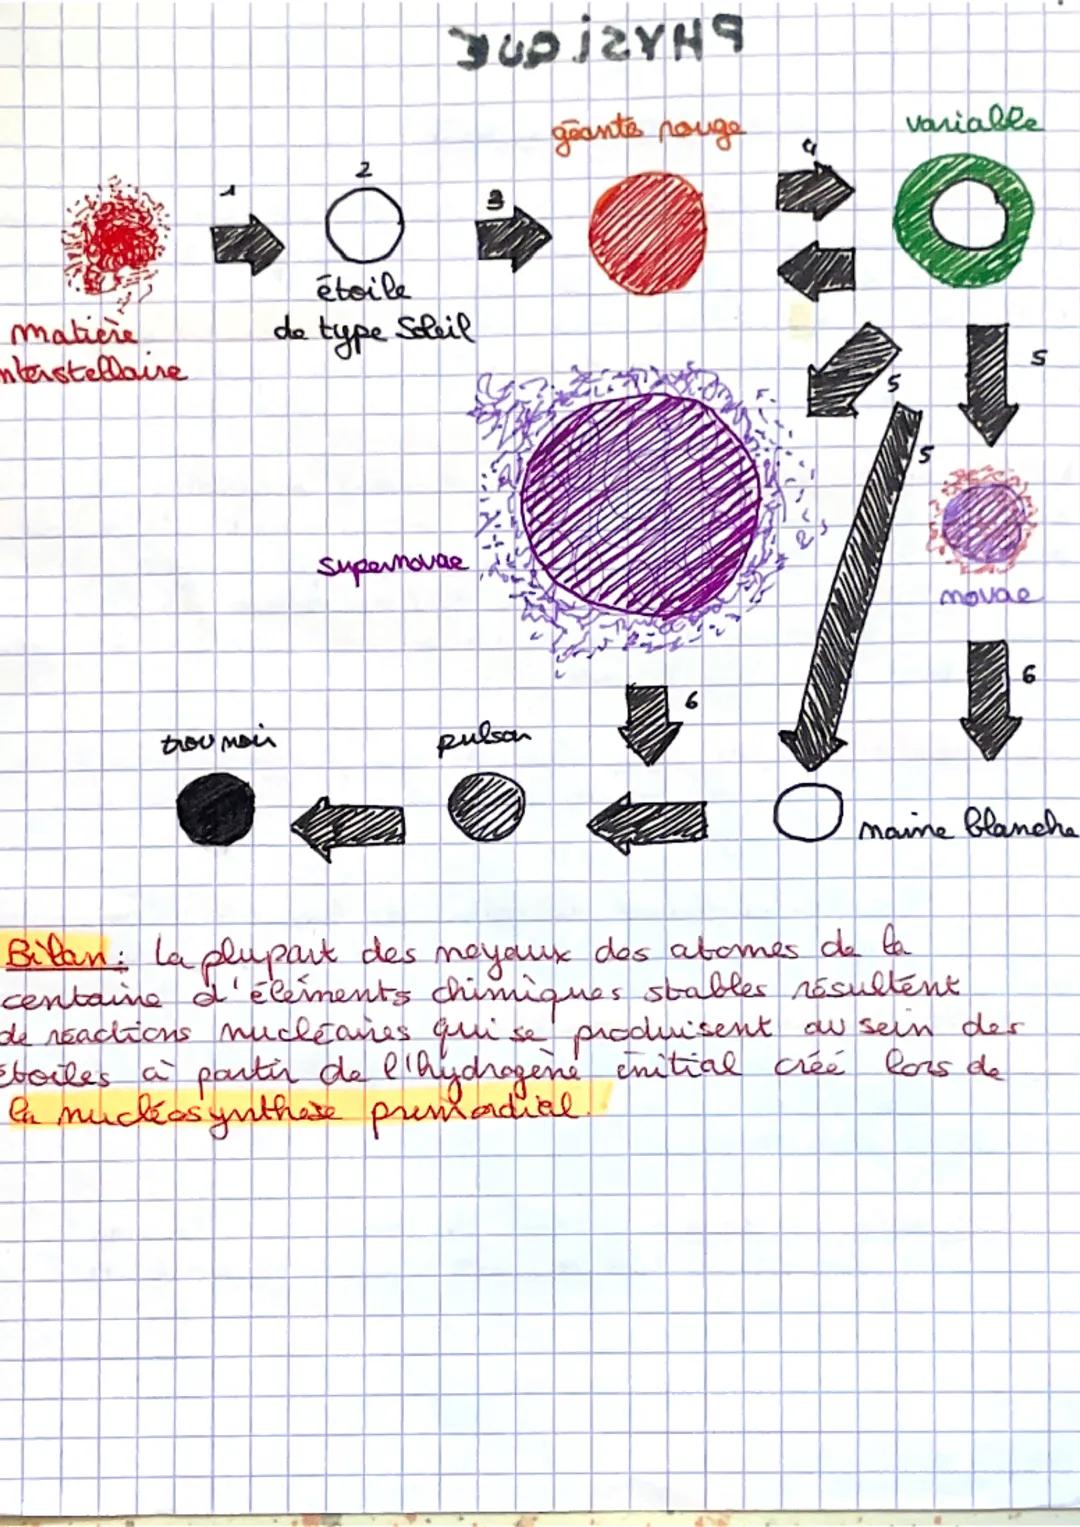 PHYSIQUE
géante rouge
variable
1
2
3
4
étoile
de type Soleil
matière
nterstellaire
5
5
5
supernovae
novae
6
6
trou noir
pulsar
naine blanche
Bilan : La plupart des noyaux des atomes de la
centaine d'éléments chimiques stables résultent
de réactions nucléaires qui se produisent au sein des
étoiles à partir de l'hydrogène initial créé lors de
la nucléosynthèse primordial.